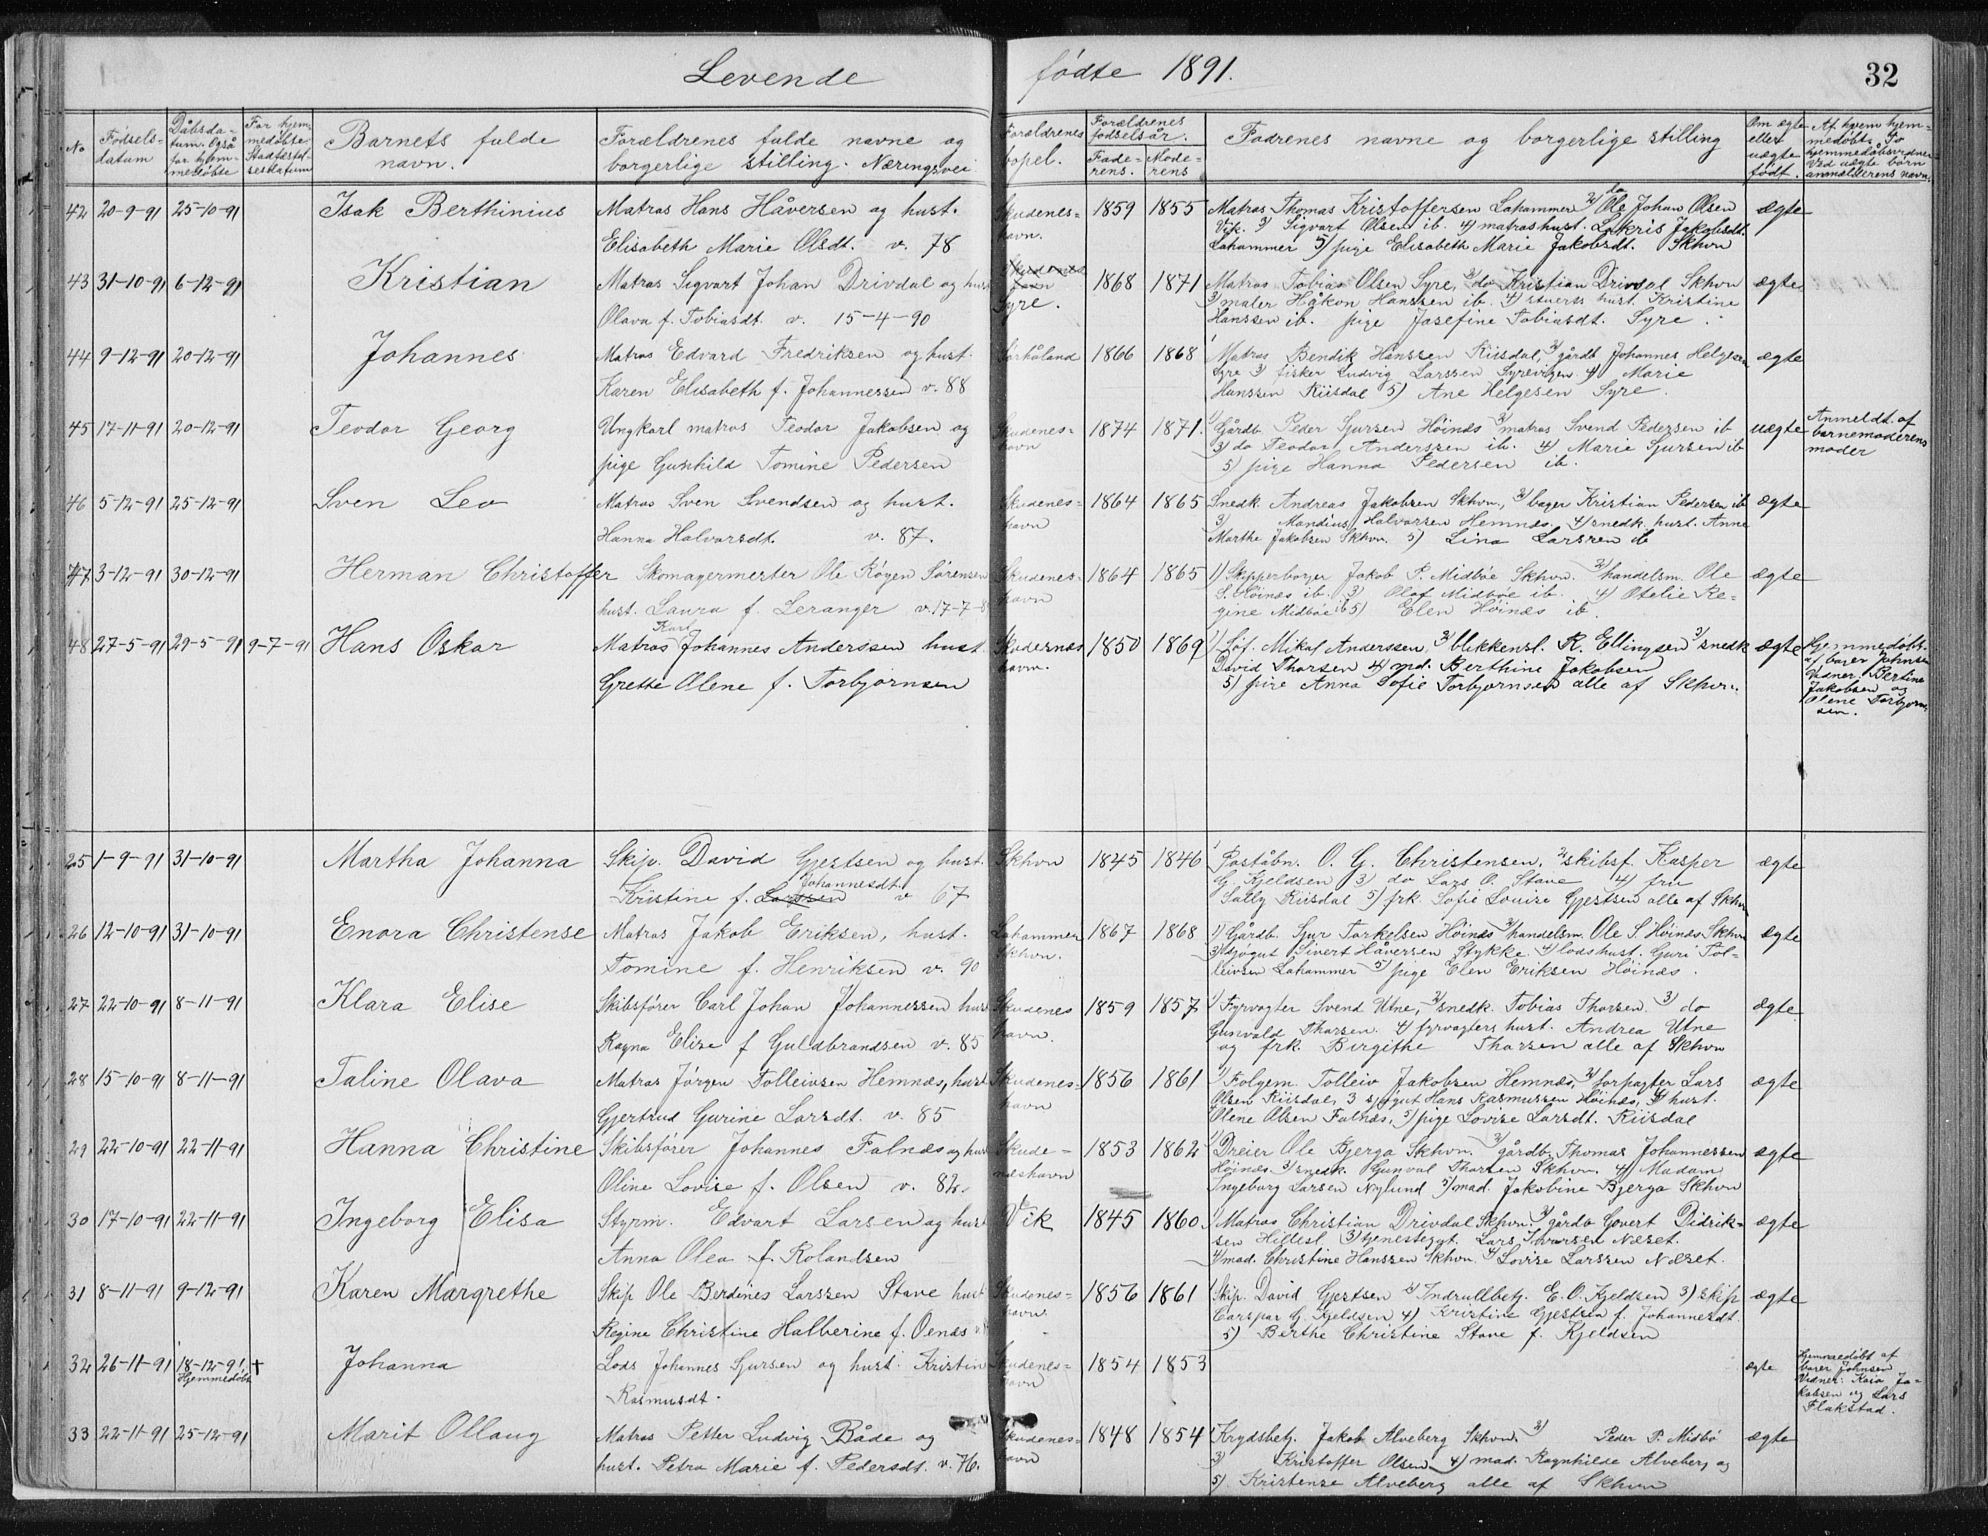 Levende fødte 1891.
32
No
Fødsels-datum
Dåbsda-tum. Også for hjem-medøbte
For hjem-medøbte Stadfæstel-sesdatum
Barnets fulde navn.
Forældrenes fulde navne og borgerlige stilling. Næringsvei
Forældrenes bopel.
Forældrenes fødselsår.
Fade-rens.
Mode-rens
Fadrenes navne og borgerlige stilling
Om ægte eller uægte født.
Af hvem hjem-medøbt. To hjemmedåbsvidner. Ved uægte børn anmelderens navn.
42 20-9-91 25-10-91 Isak Berthinius Matros Hans Håversen og hust. Skudenes- 1859 1855 Matros Thomas Kristoffersen Lahammer 2) do Ole Johan Olsen ægte
Elisabeth Marie Olsdt. v. 78 havn. Vik. 3) Sigvart Olsen ib. 4) matroshust. Lakris Jakobsdt.
Lahammer 5) pige Elisabeth Marie Jakobsdt. Skhvn
43 31-10-91 6-12-91 Kristian Matros Sigvart Johan Drivdal og hust Skudenes havn 1868 1871 Matros Tobias Olsen Syre, 2) do Kristian Drivdal Skhvn ægte
Olava f. Tobiasdt. v. 15-4-90 Syre. 3) maler Håkon Hanssen ib. 4) stuerts hust. Kristine
Hanssen ib. pige Josefine Tobiasdt. Syre.
44 9-12-91 20-12-91 Johannes Matros Edvard Fredriksen og hust. Sørhåland 1866 1868 1 Matros Bendik Hanssen Riisdal, 2) gårdb Johannes Helgesen ægte
Karen Elisabeth f. Johannessen v. 88 Syre 3) fisker Ludvig Larssen Syrevigen 4) Marie
Hanssen Riisdal 5) Ane Helgesen Syre.
45 17-11-91 20-12-91 Teodor Georg Ungkarl matros Teodor Jakobsen og Skudenes- 1874 1871. 1) Gårdb Peder Sjursen Høinæs 2) matros Svend Pedersen ib uægte Anmeldt af
pige Gunhild Tomine Pedersen havn 3) do Teodor Anderssen ib. 4) Marie Sjursen ib barnemoderens
5) pige Hanna Pedersen ib. moder
46 5-12-91 25-12-91 Sven Leo Matros Sven Svendsen og hust. Skudenes- 1864 1865 Snedk. Andreas Jakobsen Skhvn, 2) bager Kristian Pedersen ib ægte
Hanna Halvarsdt. v. 87. havn 3) Mandius Halvorsen Hemnæs. 4) snedk. hust. Anne
Marthe Jakobsen Skhvn. 5) Lina Larssen ib
47 3-12-91 30-12-91 Herman Christoffer Skomagermester Ole Røyen Sørensen Skudenes- 1864 1865 1) Skipperborger Jakob P. Midbøe Skhvn. 2) handelsm. Ole ægte
hust. Laura f. Leranger v. 17-7-8 havn S. Høinæs ib. 3) Olaf Midbøe ib. 4) Otelie Re-
gine Midbøe ib 5) Elen Høinæs ib
48 27-5-91 29-5-91 9-7-91 Hans Oskar Matros Karl Johannes Anderssen hust Skudernes 1850 1869 1) Løf. Mikal Anderssen, 2) blikkensl. R. Ellingsen 3) snedk ægte Hjemmedøbt
Grethe Olene f. Torbjørnsen havn. David Thorsen 4) md. Berthine Jakobsen af barer Johnsen
5) pige Anna Sofie Torbjørnsen alle af Skhvn. Vidner: Bertine
Jakobsen og
Olene Torbjørn-
sen.
25 1-9-91 31-10-91 Martha Johanna Skip. David Gjertsen og hust. Skhvn 1845 1846 1 Poståbn. O. G. Christensen, 2) skibsf. Kasper ægte
Kristine f. Larssen Johannesdt. v 67 G. Kjeldsen 3) do Lars O. Stave 4) fru
Sally Riisdal 5) frk. Sofie Louise Gjertsen alle af Skhvn
26 12-10-91 31-10-91 Enora Christense Matros Jakob Eriksen, hust. Lahammer 1867 1868 1) Gårdb Sjur Torkelsen Høinæs 2) handelsm. Ole S Høinæs Skhvn ægte
Tomine f. Henriksen v. 90 Skhvn. 3) sjøgut Sivert Håversen Stykke 4) lodshust. Guri Tol-
leivsen Lahammer 5) pige Elen Eriksen Høinæs.
27 22-10-91 8-11-91 Klara Elise Skibsfører Carl Johan Johannessen hust Skudenes 1859 1857 1) Fyrvogter Svend Utne, 2) snedk. Tobias Thorsen 3) do ægte
Ragna Elise f Guldbrandsen v. 85 havn. Gunvald Thorsen. 4) fyrvogters hust. Andrea Utne
og frk. Birgithe Thorsen alle af Skhvn
28 15-10-91 8-11-91 Taline Olava Matros Jørgen Tolleivsen Hemnæs, hust Skudenes- 1856 1861 1) Folgem. Tolleiv Jakobsen Hemnæs, 2) forpagter Lars ægte
Gjertrud Gurine Larsdt. v. 85 havn Olsen Riisdal, 3 sjøgut Hans Rasmussen Høinæs, 4) hust.
Olene Olsen Falnæs, 5) pige Lovise Larsdt. Riisdal
29 22-10-91 22-11-91 Hanna Christine Skibsfører Johannes Falnæs og hust Skude- 1853 1862 1) Dreier Ole Bjerga Skhvn. 2) gårdb. Thomas Johannessen ægte
Oline Lovise f. Olsen v. 82. næshavn Høinæs. 3) snedk. Gunval Thorsen Skhvn. 4) Madam
Ingeborg Larsen Nylund 5) mad. Jakobine Bjerga Skhvn
30 17-10-91 22-11-91 Ingeborg Elisa Styrm. Edvart Larsen og hust Vik 1845 1860 1 Matros Christian Drivdal Skhvn. 2) gårdb Govert Didrik- ægte
Anna Olea f. Rolandsen sen Hillesl. 3) tjenestegt. Lars Ivarsen Næset.
4) mad. Christine Hanssen Skhvn 5) Lovise Larssen Næset.
31 8-11-91 9-12-91 Karen Margrethe Skip Ole Berdines Larssen Stave hust Skudenes- 1856 1861 1 Skip. David Gjertsen 2) Indrullbetj. E. O. Kjeldsen 3) skip ægte
Regine Christine Halberine f. Oenæs havn. Carspar G. Kjeldsen 4) Kristine Gjertsen f. Johannesdt.
5) Berthe Christine Stave f. Kjeldsen
32 26-11-91 18-12-91 Hjemmedøbt † Johanna Lods Johannes Sjursen og hust. Kristin Skudenes- 1854 1853 ægte Hjemmedøbt af
Rasmusdt. havn barer Johnsen
Vidner: Kaia Ja-
kobsen og Lars
Flakstad.
33 22-11-91 25-12-91 Marit Ollaug Matros Petter Ludvig Både og Skudenes- 1848 1854 1 Krydsbetj. Jakob Alveberg Skhvn. 2) Peder P. Midbø ægte
hust. Petra Marie f. Pedersdt. v. 76. havn 3) Kristoffer Olsen 4) mad. Ragnhilde Alveberg og
5) Kristense Alveberg alle af Skhvn